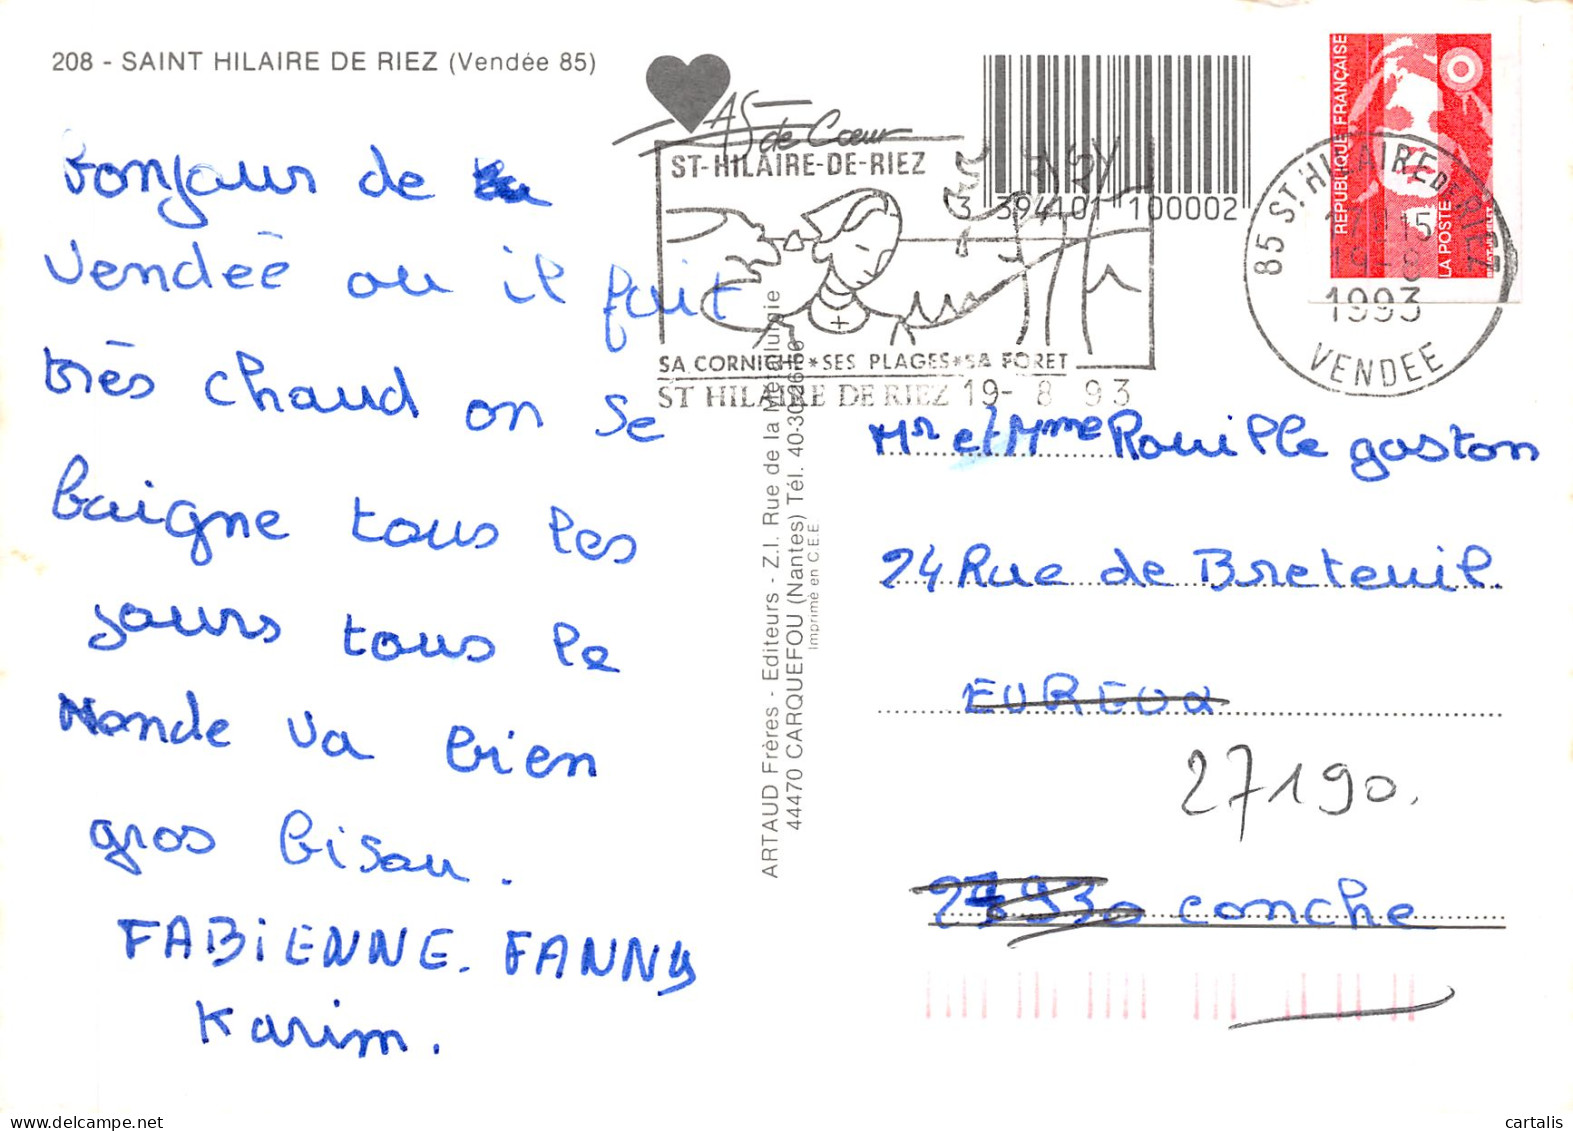 208 - SAINT HILAIRE DE RIEZ (Vendée 85)
Bonjour de la
Vendée ou il fait
très chaud on se
baigne tous les
jours tous le
Monde va bien
gros bisou.
FABiENNE. FANNY
Karim.
AS de Cœur
ST-HILAIRE-DE-RIEZ
SA CORNICHE * SES PLAGES * SA FORET
ST HILAIRE DE RIEZ 19- 8 93
3 394101 100002
REPUBLIQUE FRANÇAISE
LA POSTE
85 ST. HILAIRE DE RIEZ
15
19-8
1993
VENDEE
ARTAUD Frères - Editeurs - Z.I. Rue de la Métallurgie
44470 CARQUEFOU (Nantes) Tél. 40-30
Imprimé en C.E.E
Mr et Mme Rouille gaston
24 Rue de Breteuil.
EUREUX
27190.
27930 conche
cartalis